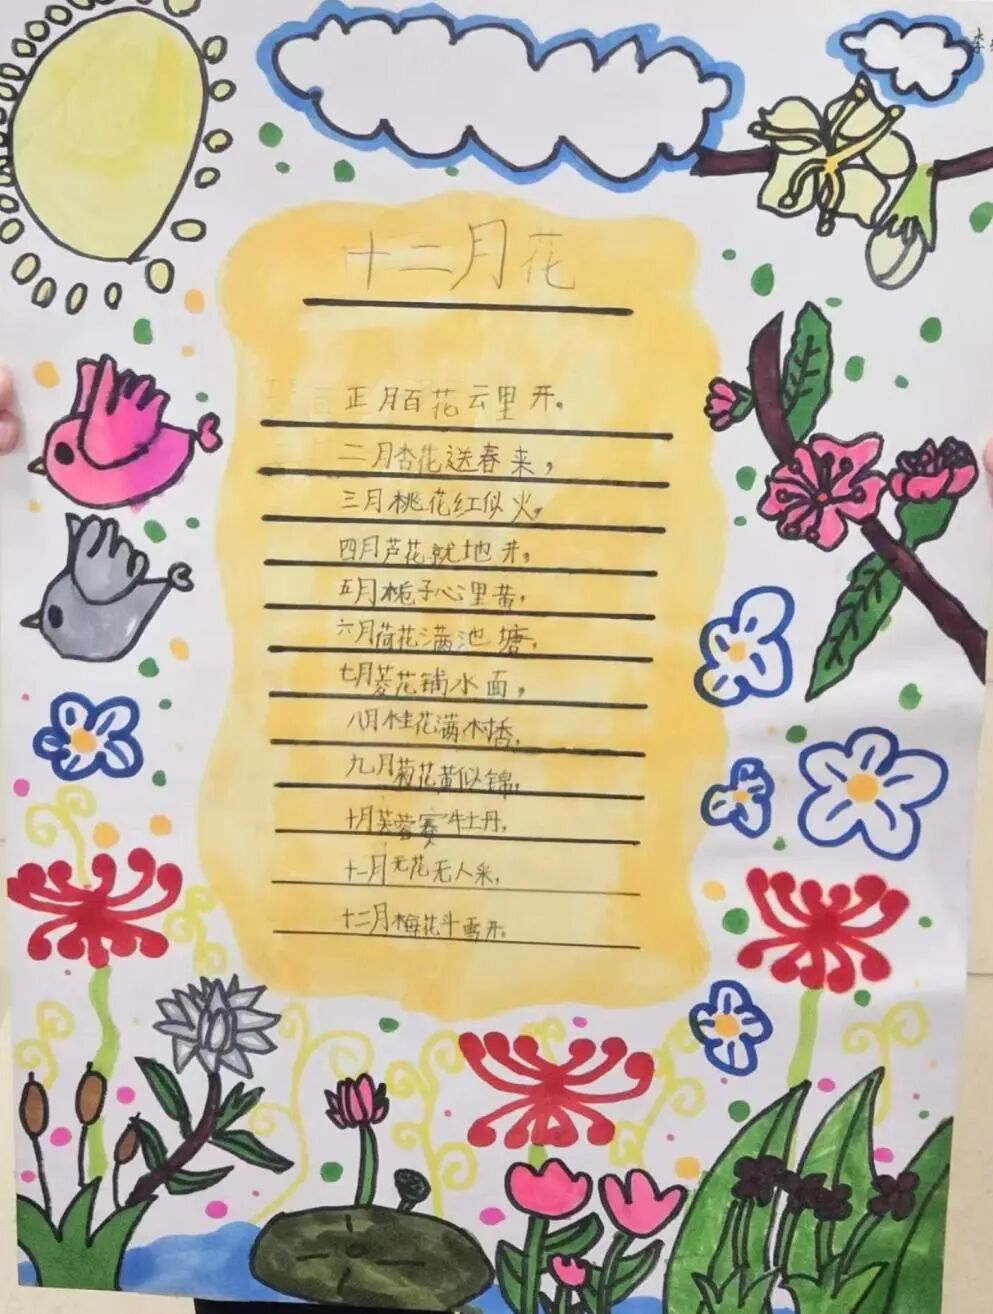 李
十二月花
正月百花云里开。
二月杏花送春来，
三月桃花红似火，
四月芦花就地开，
五月栀子心里黄，
六月荷花满池塘，
七月菱花铺水面，
八月桂花满村香，
九月菊花黄似锦，
十月芙蓉赛牡丹，
十一月无花无人采，
十二月梅花斗雪开。